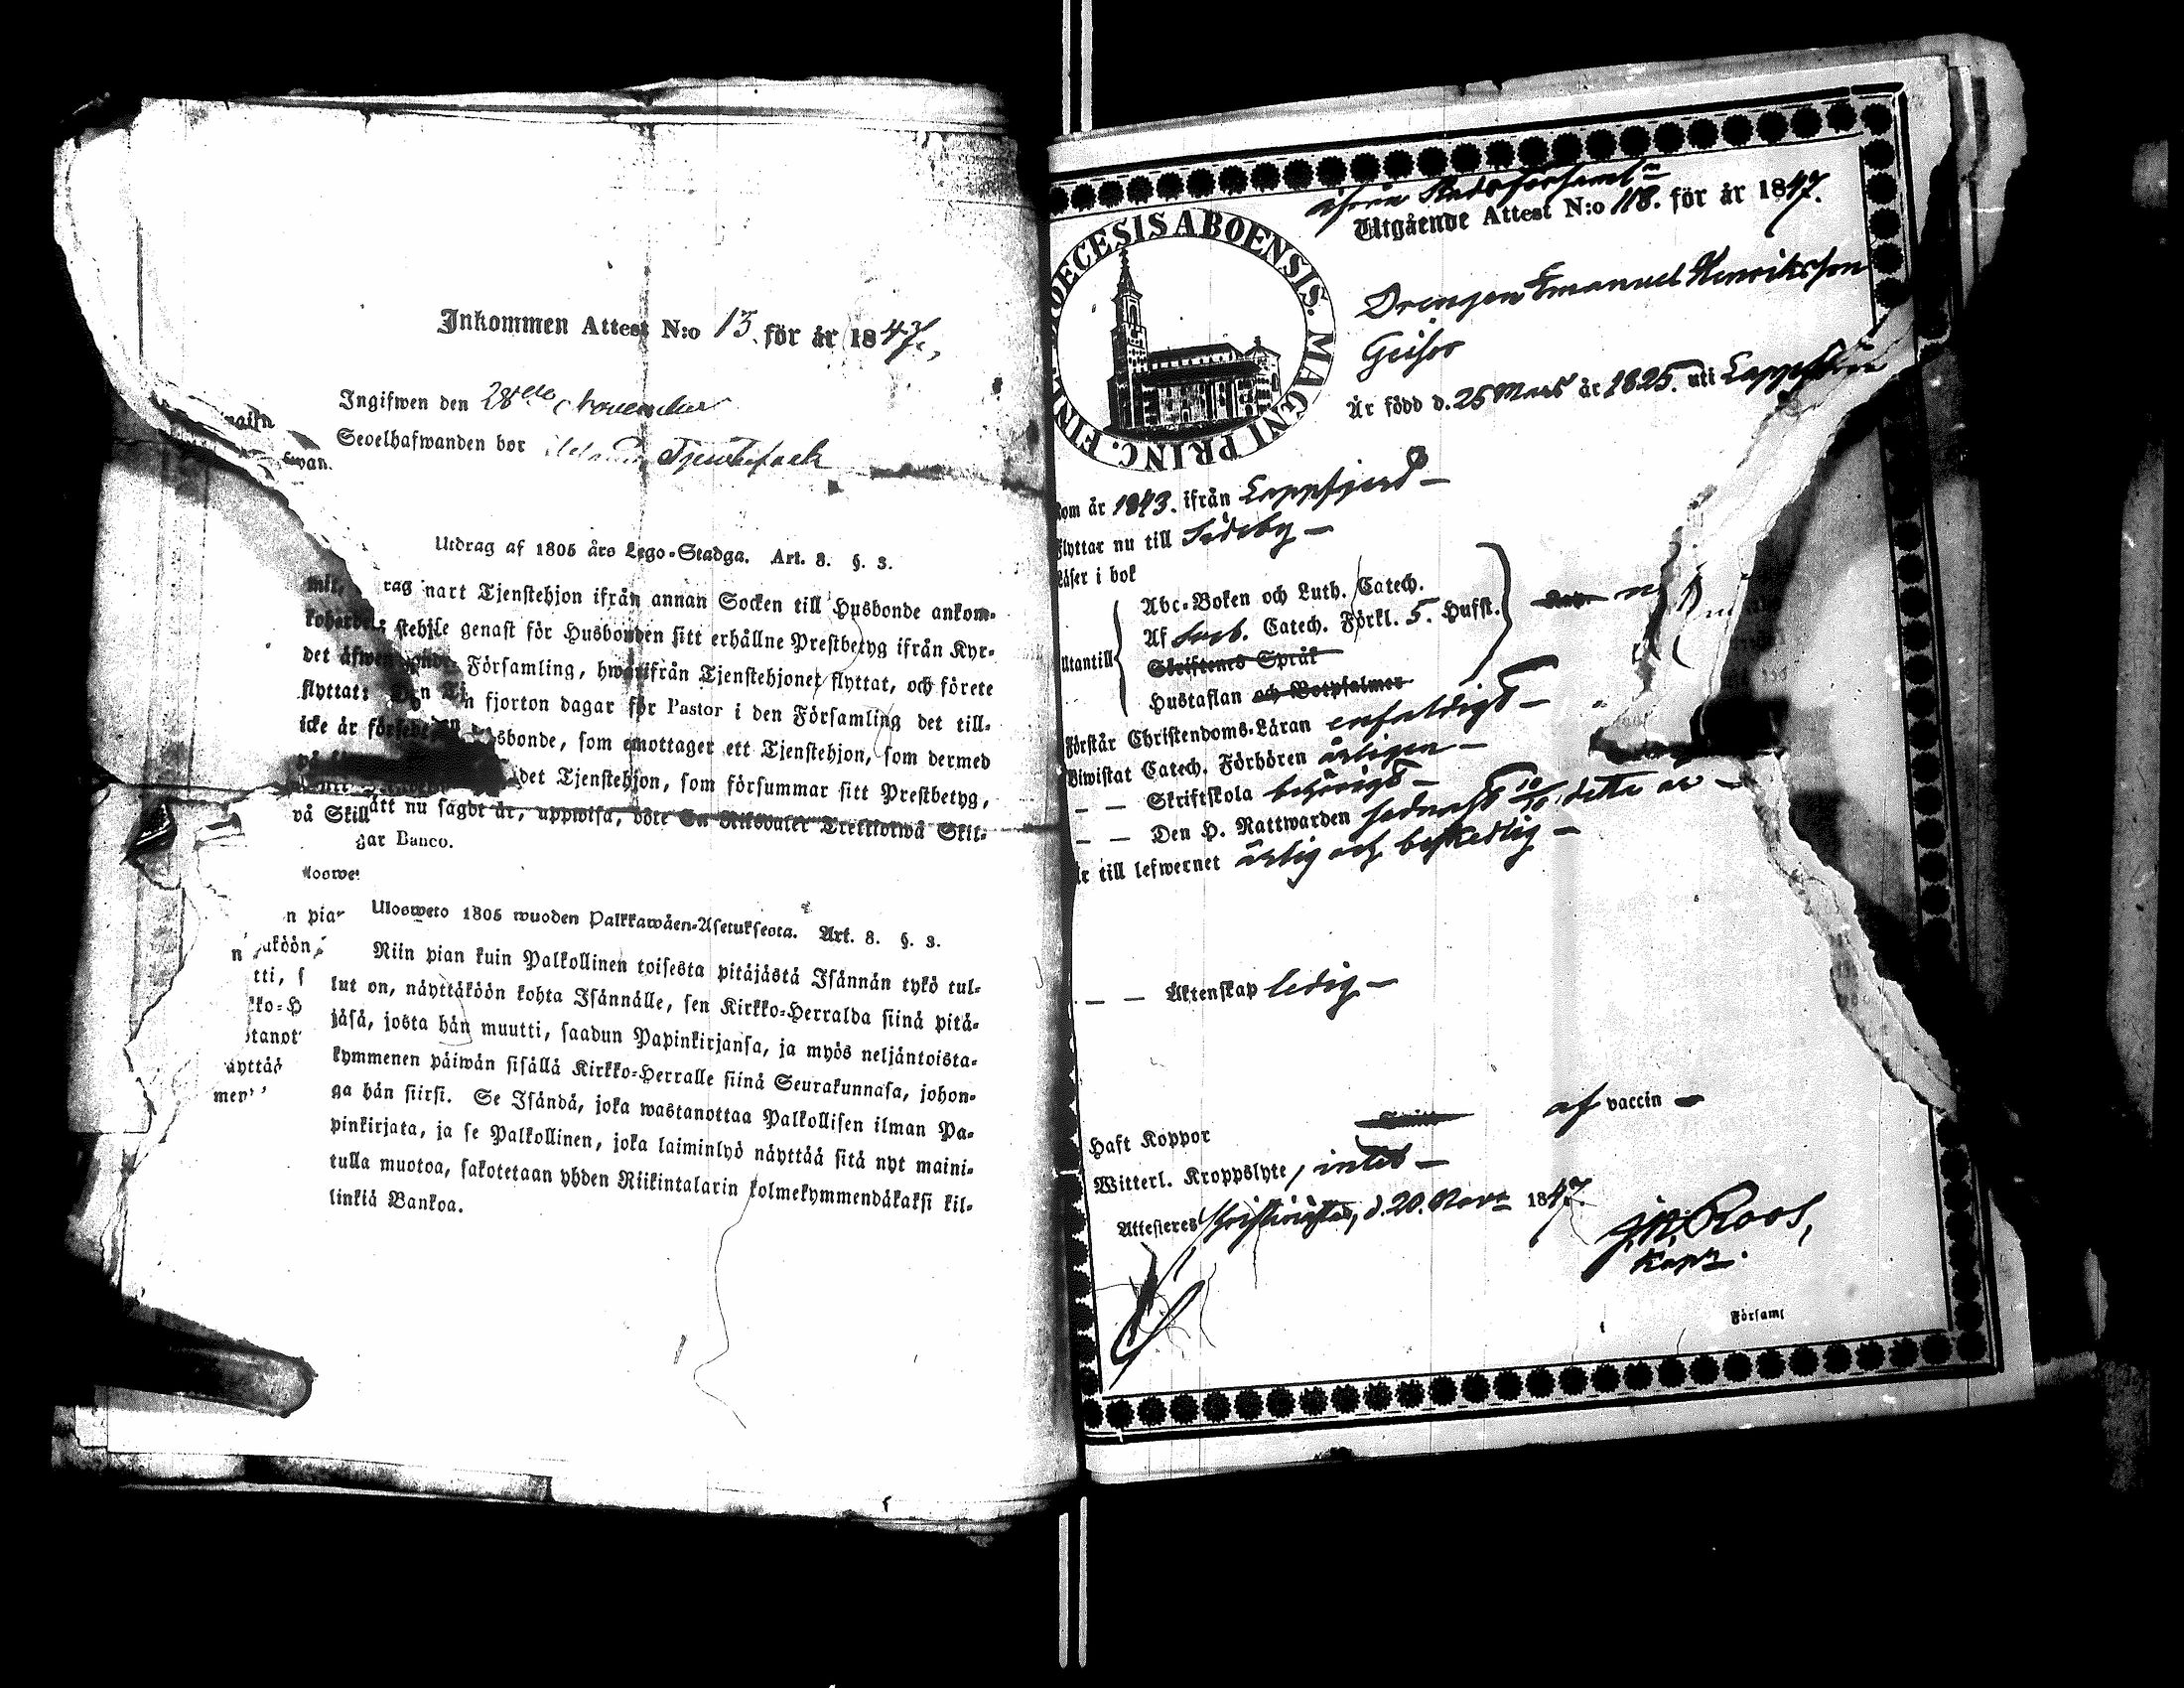 Inkommen Attest N:o 13. för år 1847.
Ingifwen den 28de November
Sedelhafwanden bor
Utdrag af 1805 års Lego-Stadga. Art. 8. §. 3.
nart Tjenstehjon ifrån annan Socken till Husbonde ankom-
genast för Husbonden sitt erhållne Prestbetyg ifrån Kyr-
Församling, hwarifrån Tjenstehjonet flyttat, och förete
fjorton dagar för Pastor i den Församling det till-
flyttat:
icke är som emottager ett Tjenstehjon, som dermed
det Tjenstehjon, som försummar sitt Prestbetyg,
på Skill att nu sagdt är, uppwisa, böte En Riksdaler Trettiotwå Skil-
gar Banco.
Ulosweto 1805 wuoden Palkkawäen-Asetuksesta. Art. 8. §. 3.
Niin pian kuin Palkollinen toisesta pitäjästä Isännän tykö tul-
lut on, näyttäköön kohta Isännälle, sen Kirkko-Herralda siinä pitä-
jäsä, josta hän muutti, saadun Papinkirjansa, ja myös neljäntoista-
kymmenen päiwän sisällä Kirkko-Herralle siinä Seurakunnasa, johon-
ga hän siirsi. Se Isändä, joka wastanottaa Palkollisen ilman Pa-
pinkirjata, ja se Palkollinen, joka laiminlyö näyttää sitä nyt maini-
tulla muotoa, sakotetaan yhden Riikintalarin kolmekymmendäkaksi kil-
linkiä Bankoa.
ifrån Stadsförsaml
Utgående Attest N:o 118. för år 1847.
DIOECESIS ABOENSIS. MAGNI PRINC. FINL.
Drengen Emanuel Henriksson
Geisor
Är född d. 25 Mars år 1825. uti Lappfjerd
Kom år 1843. ifrån Lappfjerd —
Flyttar nu till Sideby —
Läser i bok
Abc-Boken och Luth. Catech.
Utantill Af Catech. Förkl. 5. Hufst.
Skriftenes Språk
Hustaflan och Botpsalmer
Förstår Christendoms-Läran enfaldigt —
Biwistat Catech. Förhören årligen —
— — Skriftskola behörigt —
— — Den H. Nattwarden sednast 10/10 detta år —
Är till lefwernet ärlig och beskedlig —
— — Äktenskap ledig —
Haft Koppor af vaccin —
Witterl. Kroppslyte, intet —
Attesteres Christinestad, d. 20. Novr 1847.
J. N. Roos,
Kapn.
Församl